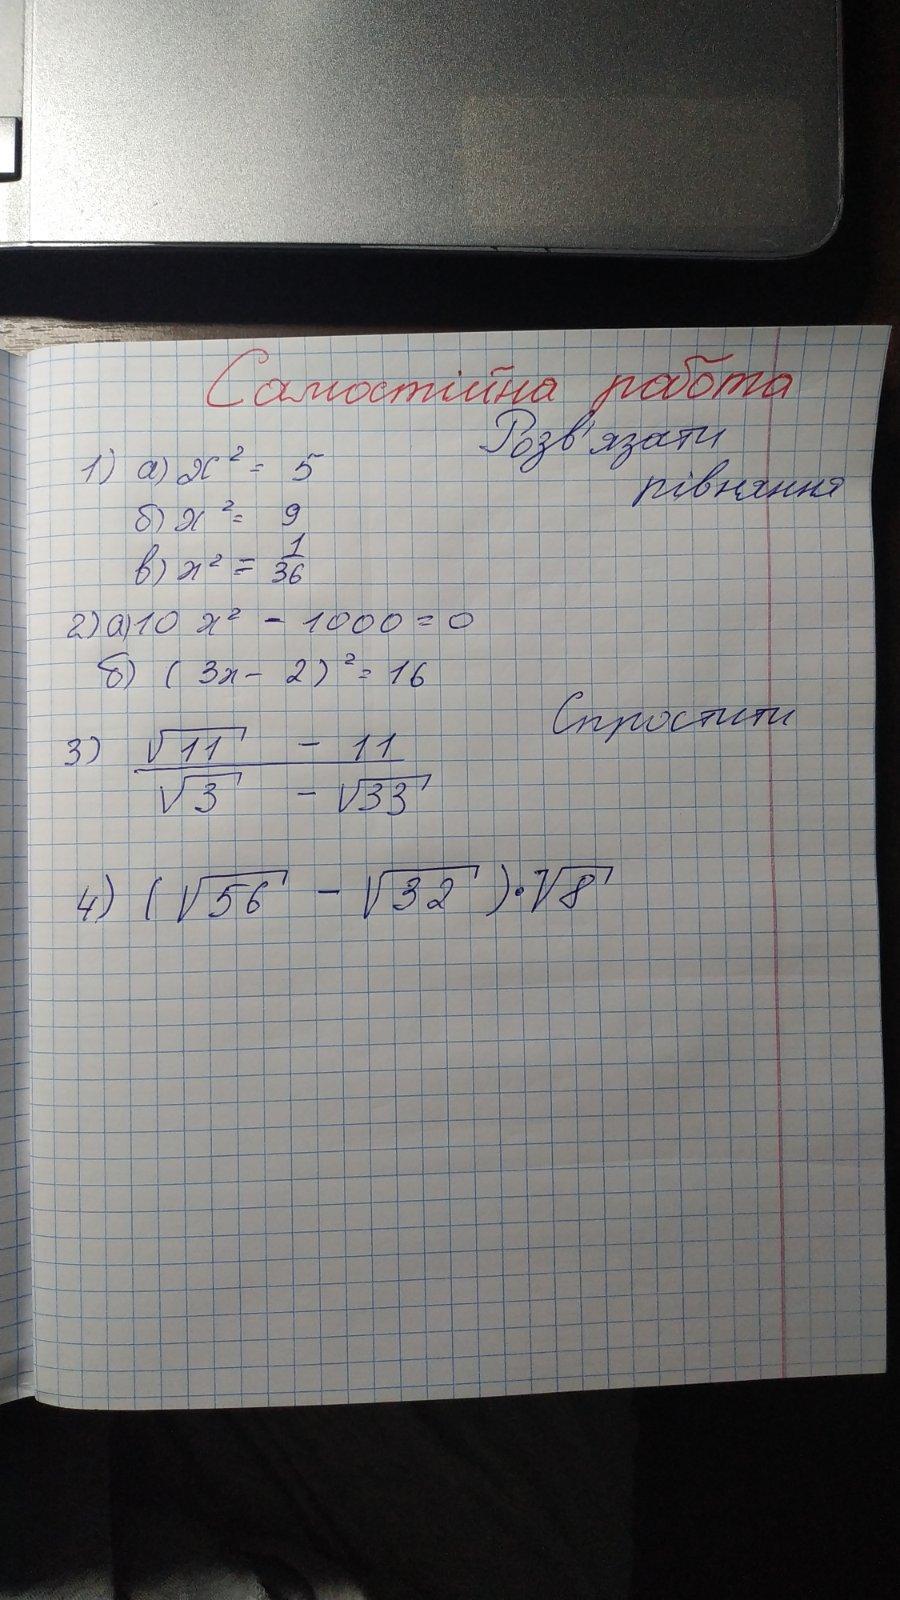 Самостійна робота
Розв'язати
рівняння
1) а) x² = 5
б) x² = 9
в) x² = 1/36
2) а) 10 x² - 1000 = 0
б) (3x - 2)² = 16
Спростити
3) (√11 - 11)/(√3 - √33)
4) (√56 - √32) · √8